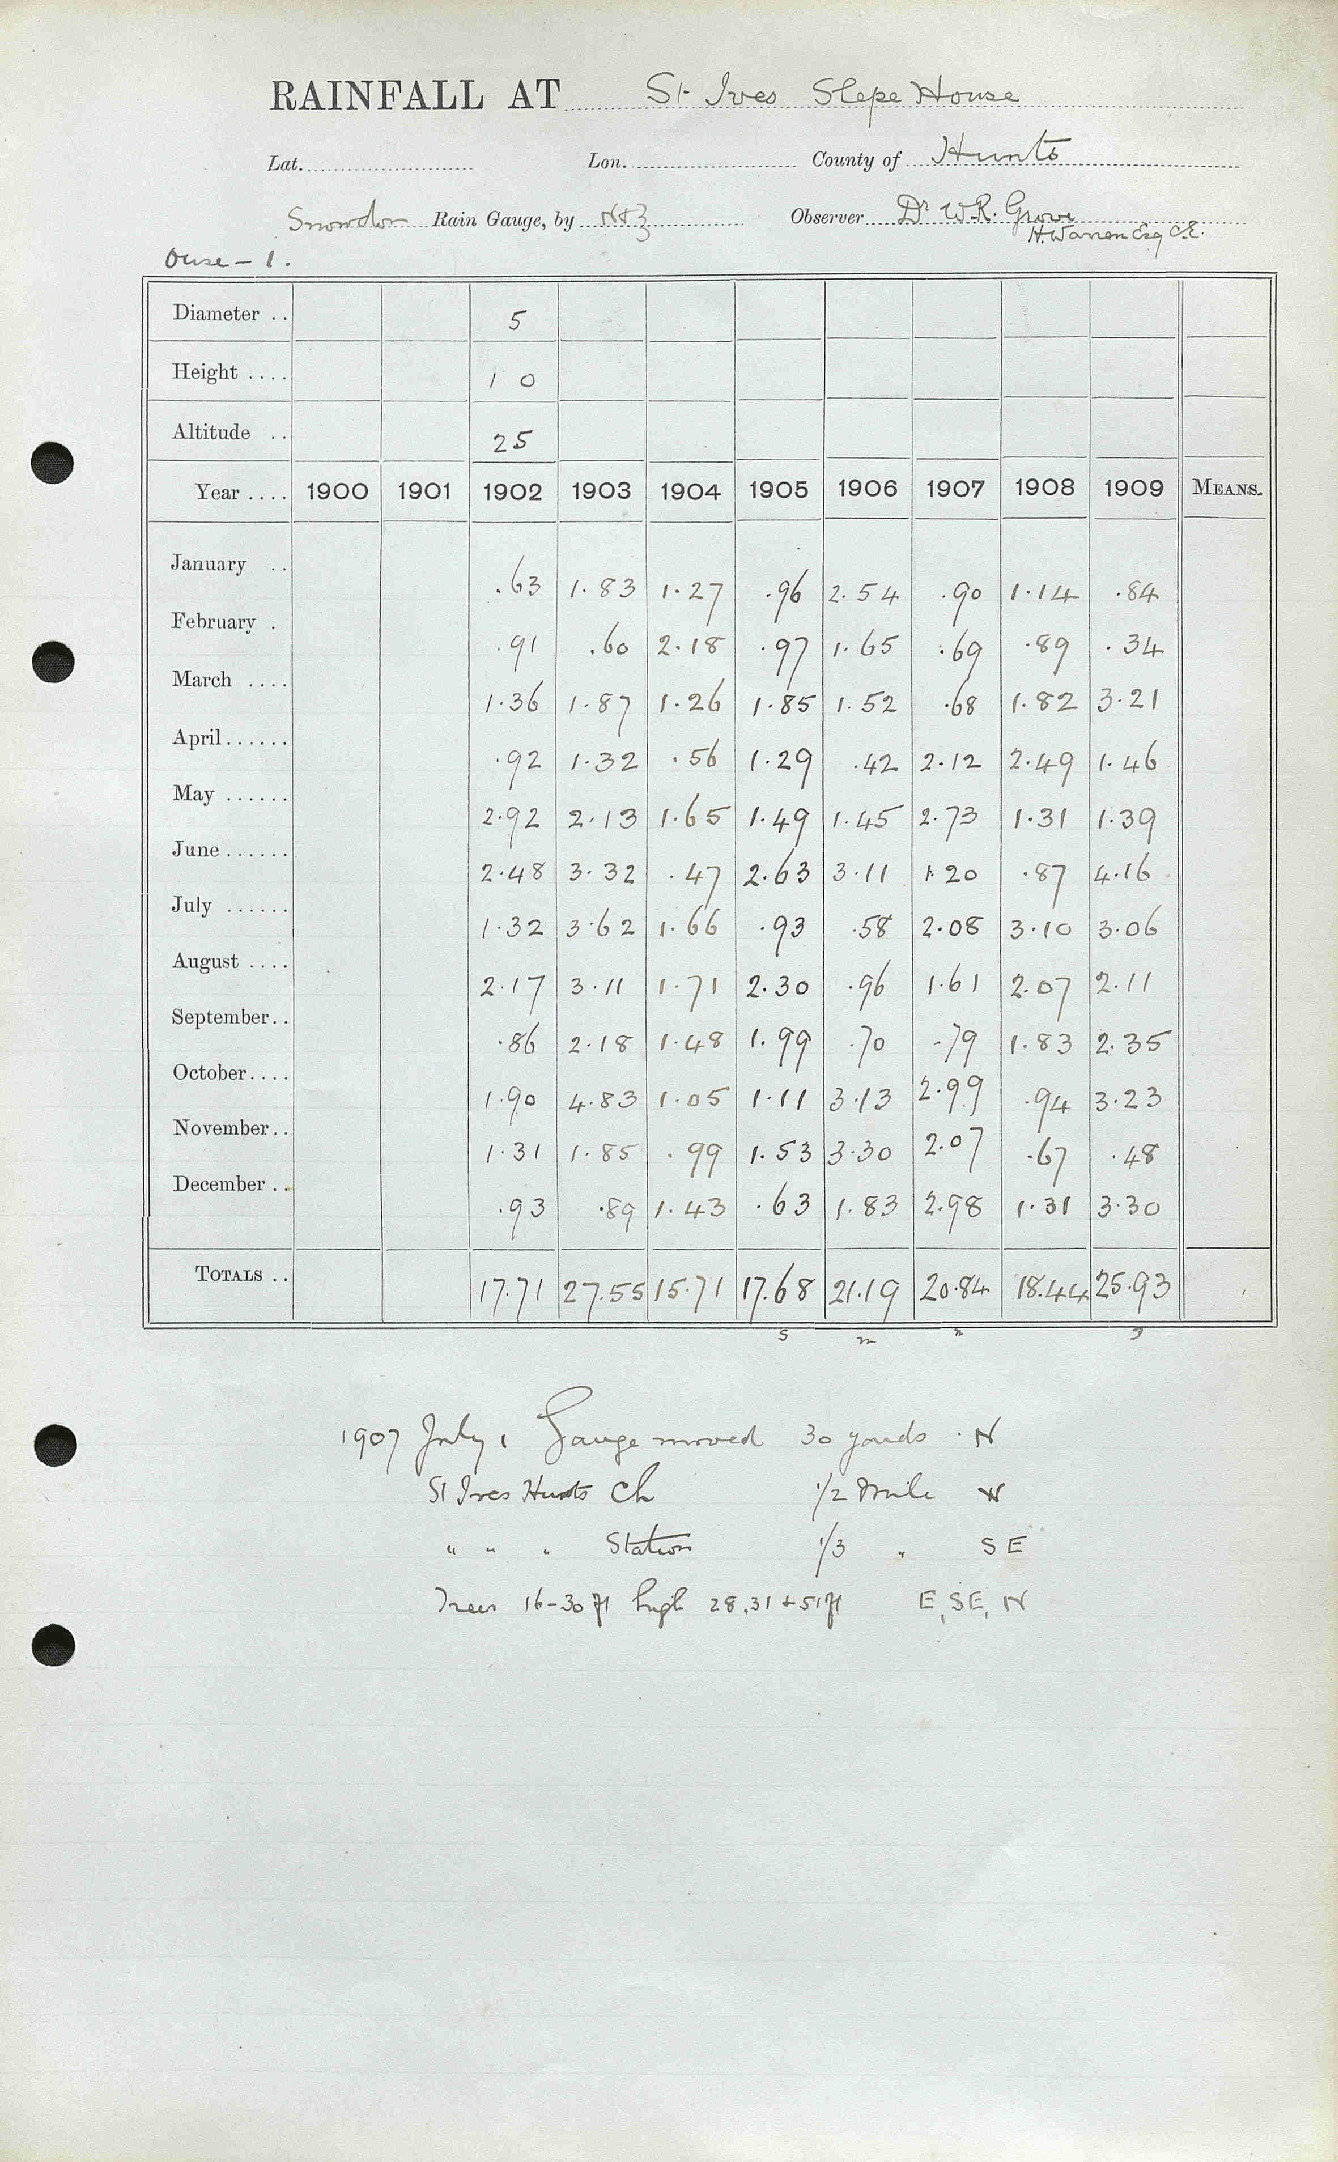 RAINFALL AT St Ives Slepe House
Lat. Lon. County of Hunts
Snowdon Rain Gauge, by N&Z Observer Dr W.R. Grove
H. Warren Esq C.E.
Ouse - 1.
Diameter .. 5
Height .... 1 0
Altitude .. 25
Year .... 1900 1901 1902 1903 1904 1905 1906 1907 1908 1909 MEANS.
January .. .63 1.83 1.27 .96 2.54 .90 1.14 .84
February . .91 .60 2.18 .97 1.65 .69 .89 .34
March .... 1.36 1.87 1.26 1.85 1.52 .68 1.82 3.21
April...... .92 1.32 .56 1.29 .42 2.12 2.49 1.46
May ...... 2.92 2.13 1.65 1.49 1.45 2.73 1.31 1.39
June...... 2.48 3.32 .47 2.63 3.11 1.20 .87 4.16
July ...... 1.32 3.62 1.66 .93 .58 2.08 3.10 3.06
August .... 2.17 3.11 1.71 2.30 .96 1.61 2.07 2.11
September.. .86 2.18 1.48 1.99 .70 .79 1.83 2.35
October.... 1.90 4.83 1.05 1.11 3.13 2.99 .94 3.23
November.. 1.31 1.85 .99 1.53 3.30 2.07 .67 .48
December .. .93 .89 1.43 .63 1.83 2.98 1.31 3.30
TOTALS .. 17.71 27.55 15.71 17.68 21.19 20.84 18.44 25.93
1907 July 1 Gauge moved 30 yards . N
St Ives Hunts Ch 1/2 Mile W
" " " Station 1/3 " S E
Trees 16-30 ft high 28, 31 + 51 ft E, SE, N